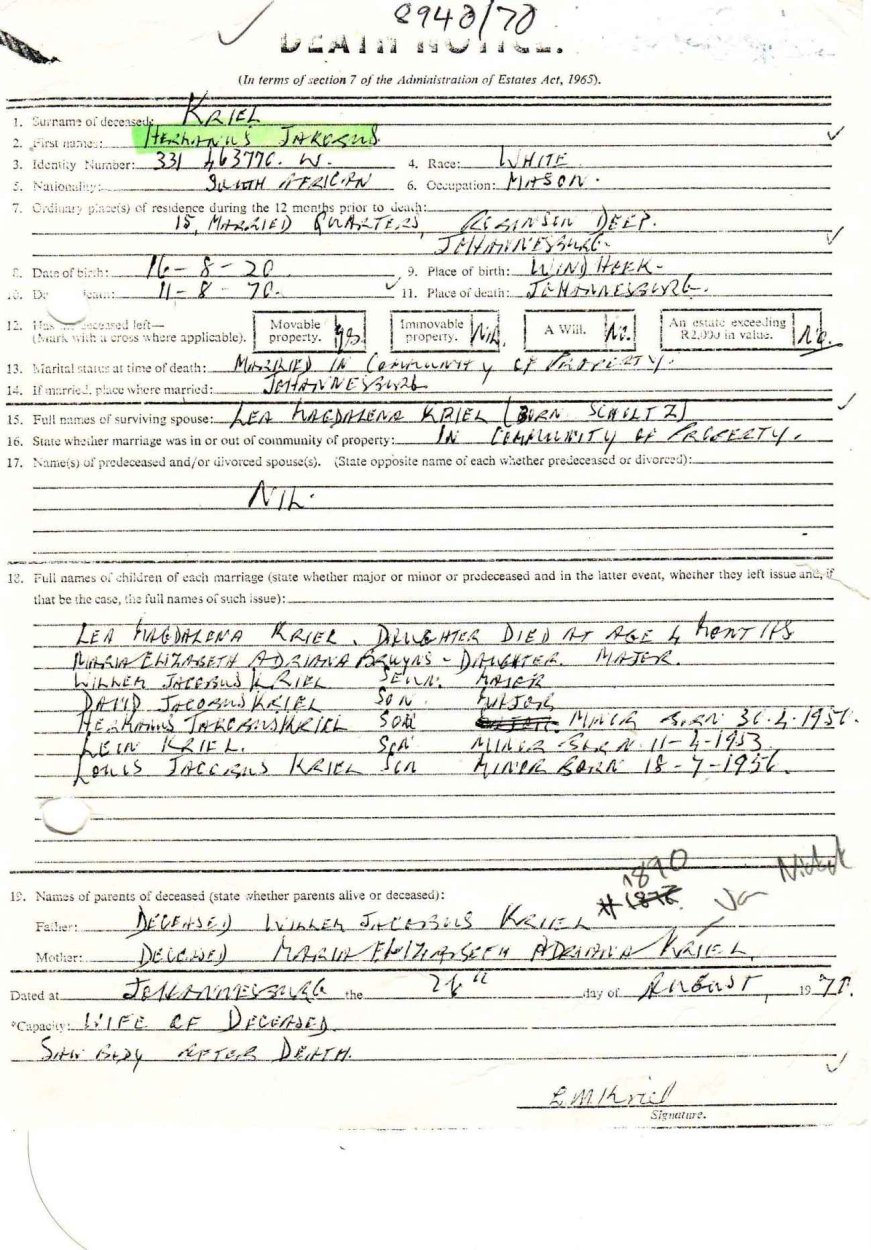 8940/70
DEATH NOTICE.
(In terms of section 7 of the Administration of Estates Act, 1965).
1. Surname of deceased: KRIEL
2. First names: HERMANUS JAKOBUS
3. Identity Number: 331 463770. W. 4. Race: WHITE
5. Nationality: SOUTH AFRICAN 6. Occupation: MASON.
7. Ordinary place(s) of residence during the 12 months prior to death:
15, MARRIED QUARTERS, ROBINSON DEEP.
JOHANNESBURG.
8. Date of birth: 16-8-20 9. Place of birth: WINDHOEK-
10. Da death: 11-8-70. 11. Place of death: JOHANNESBURG.
12. Has the deceased left— Movable property. yes. Immovable property. Nil. A Will. No. An estate exceeding R2,000 in value. No.
(Mark with a cross where applicable).
13. Marital status at time of death: MARRIED IN COMMUNITY OF PROPERTY.
14. If married, place where married: JOHANNESBURG
15. Full names of surviving spouse: LEA MAGDALENA KRIEL (BORN SCHOLTZ)
16. State whether marriage was in or out of community of property: IN COMMUNITY OF PROPERTY.
17. Name(s) of predeceased and/or divorced spouse(s). (State opposite name of each whether predeceased or divorced):
NIL.
18. Full names of children of each marriage (state whether major or minor or predeceased and in the latter event, whether they left issue and, if
that be the case, the full names of such issue):
LEA MAGDALENA KRIEL. DAUGHTER DIED AT AGE 4 MONTHS
MARIA ELIZABETH ADRIANA BRUYNS - DAUGHTER. MAJOR.
WILLEM JACOBUS KRIEL SEUN. MAJOR
DAVID JACOBUS KRIEL SON. MAJOR
HERMANUS JAKOBUS KRIEL SON MINOR BORN 30-4-1950.
LEON KRIEL. SON MINOR BORN 11-4-1953
LOUIS JACOBUS KRIEL SON MINOR BORN 18-7-1956.
1890
# 1876 Jan
19. Names of parents of deceased (state whether parents alive or deceased):
Father: DECEASED WILLEM JACOBUS KRIEL
Mother: DECEASED MARIA ELIZABETH ADRIANA KRIEL.
Dated at JOHANNESBURG the 26" day of AUGUST, 1970.
*Capacity: WIFE OF DECEASED
SAW BODY AFTER DEATH.
L M Kriel
Signature.